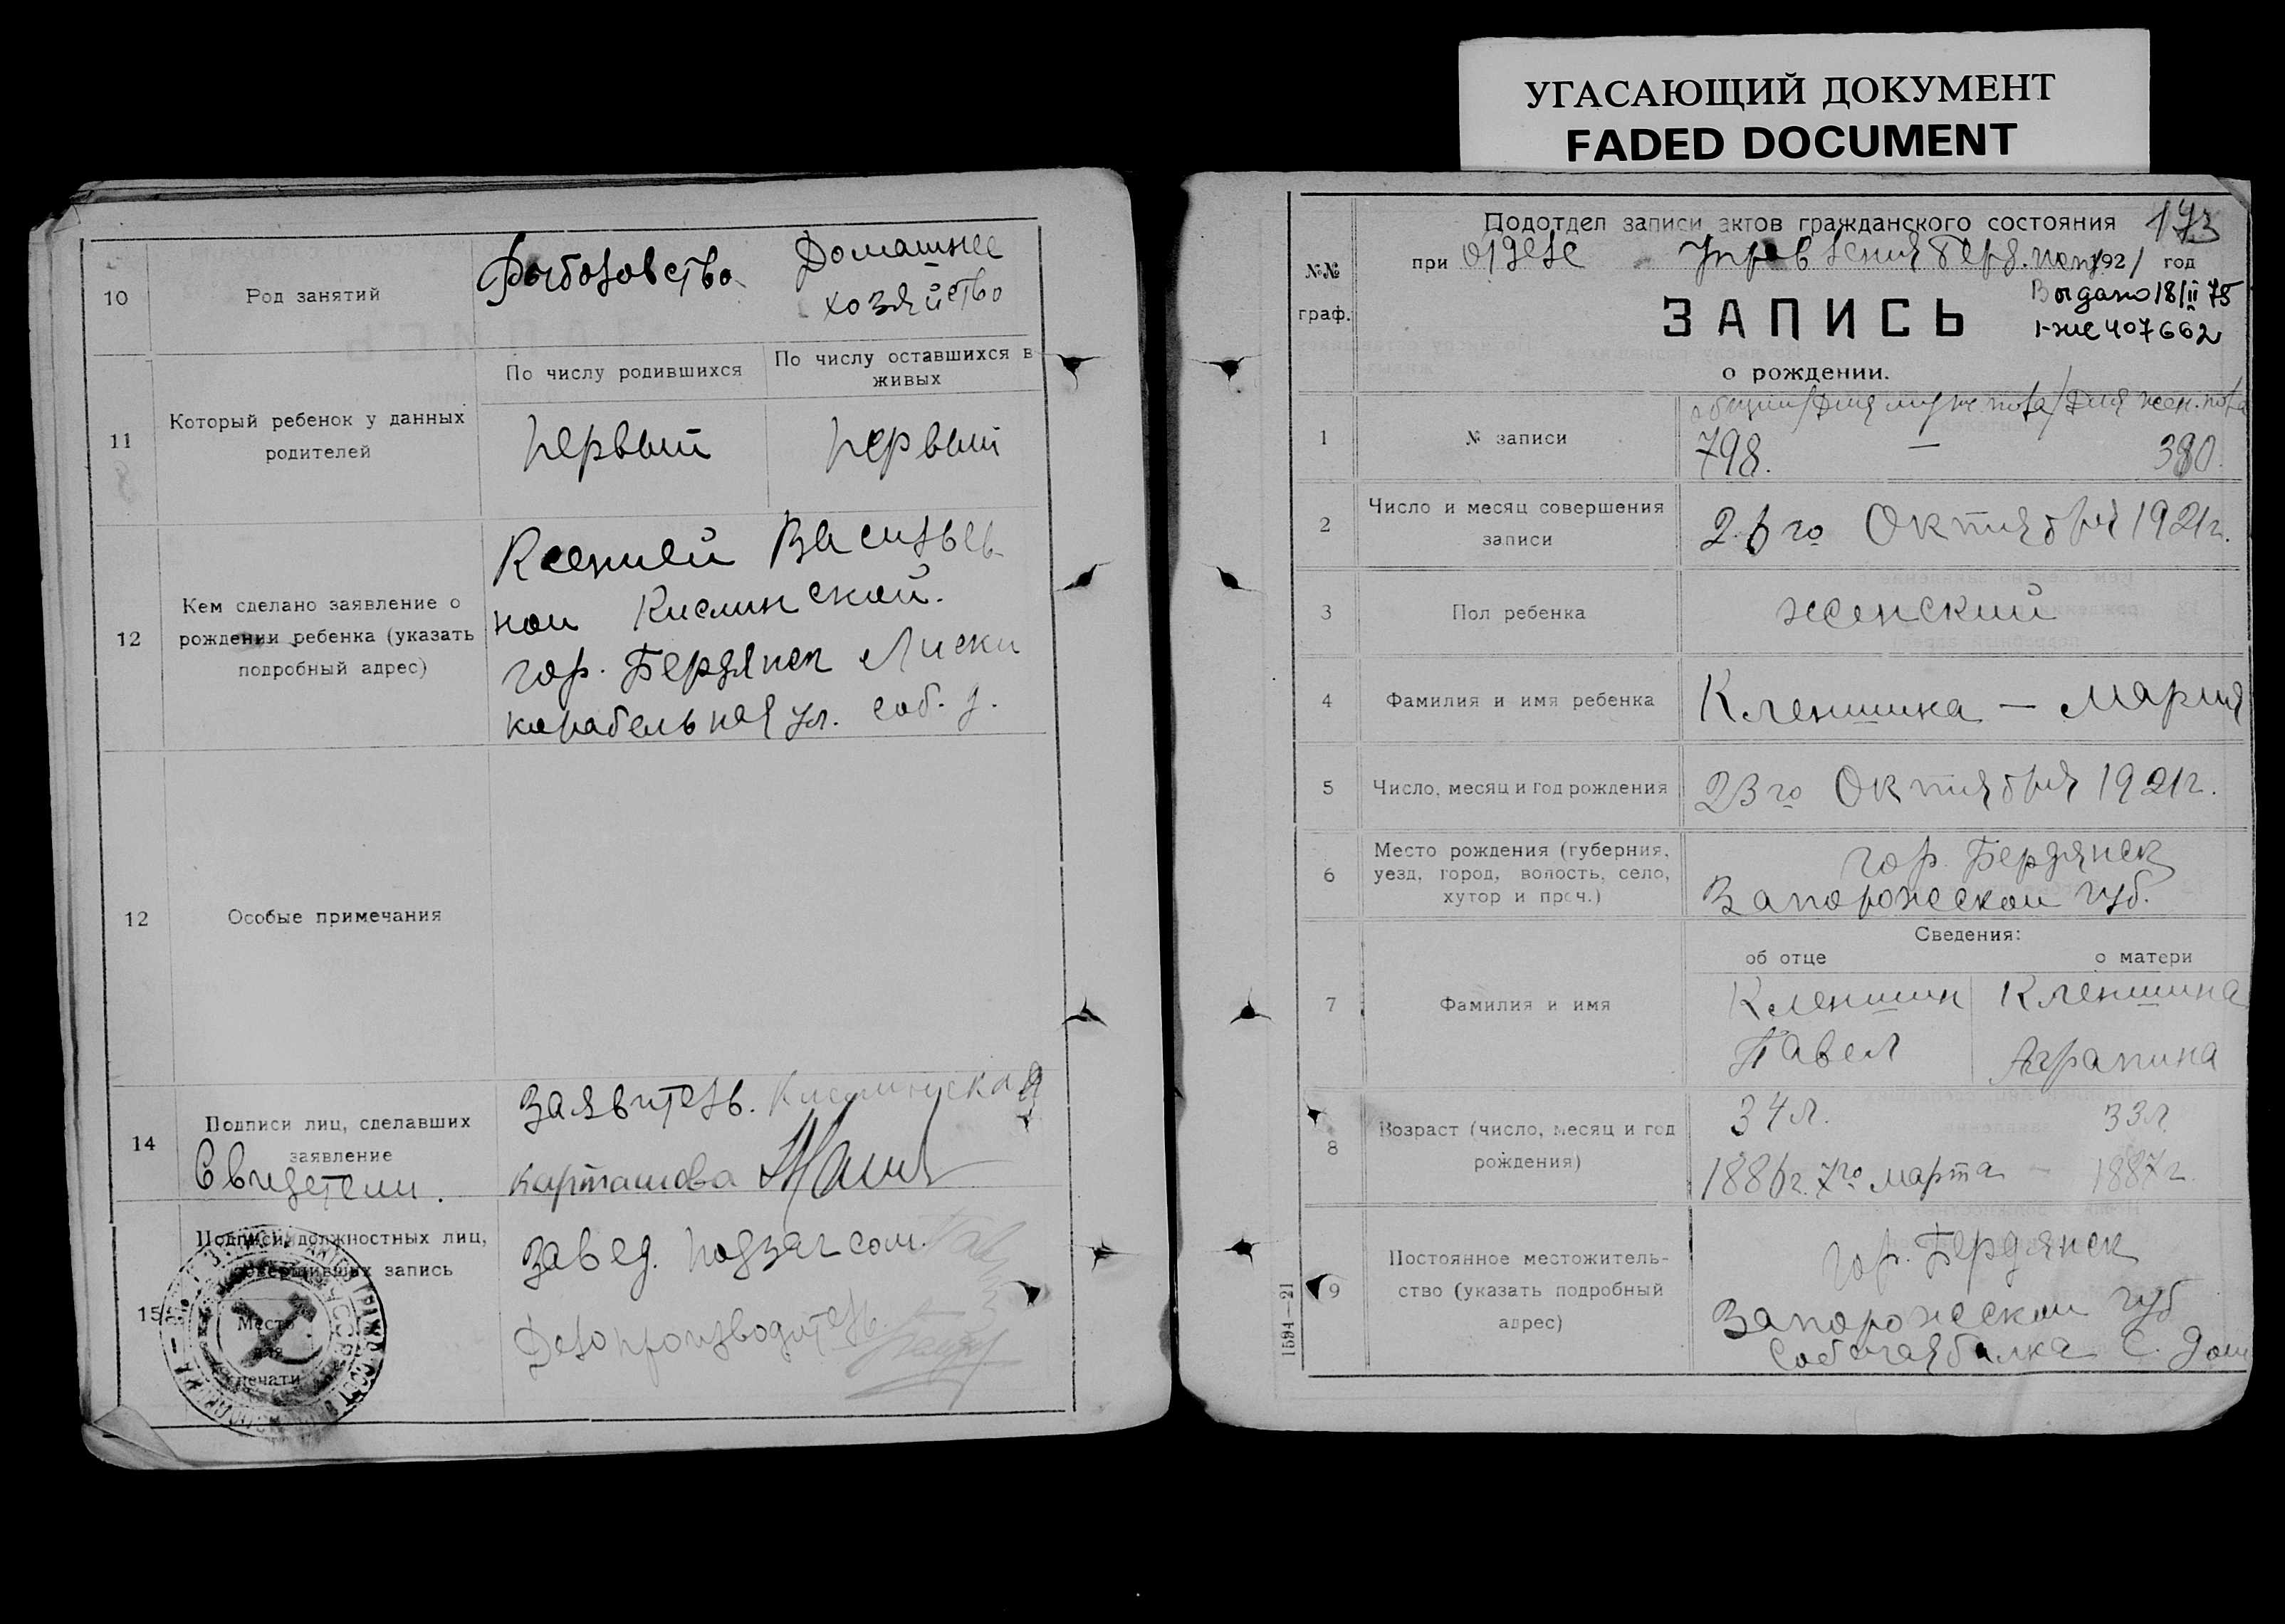 УГАСАЮЩИЙ ДОКУМЕНТ
FADED DOCUMENT
10
Род занятий
Рыболовство
Домашнее
хозяйство
11
Который ребенок у данных
родителей
По числу родившихся
По числу оставшихся в
живых
первый
первый
12
Кем сделано заявление о
рождении ребенка (указать
подробный адрес)
Ксенией Васильев
ной Кислинской.
гор. Бердянск Лиски
карабельная ул. соб. д.
12
Особые примечания
14
Подписи лиц, сделавших
заявление
Свидетели.
Заявитель. Кислинская
Карташова
15
Подписи должностных лиц,
совершивших запись
Место
для
печати
Завед. подзагсом.
Делопроизводитель.
№№
граф.
Подотдел записи актов гражданского состояния
173
при отделе Управления Берд. 1921 год
Выдано 18/II 75
I-жс 407662
ЗАПИСЬ
о рождении.
1
№ записи
общий/для муж пола/для жен. пола
798. — 380.
2
Число и месяц совершения
записи
26го Октября 1921г.
3
Пол ребенка
женский
4
Фамилия и имя ребенка
Кленшина — Мария
5
Число, месяц и год рождения
23го Октября 1921г.
6
Место рождения (губерния,
уезд, город, волость, село,
хутор и проч.)
гор. Бердянск
Запорожской губ.
Сведения:
об отце
о матери
7
Фамилия и имя
Кленшин
Павел
Кленшина
Аграпина
8
Возраст (число, месяц и год
рождения)
34л.
33л.
1886г. 7го марта —
1887г.
9
Постоянное местожитель-
ство (указать подробный
адрес)
гор. Бердянск
Запорожской губ
Собачая балка С. дом
1594—21